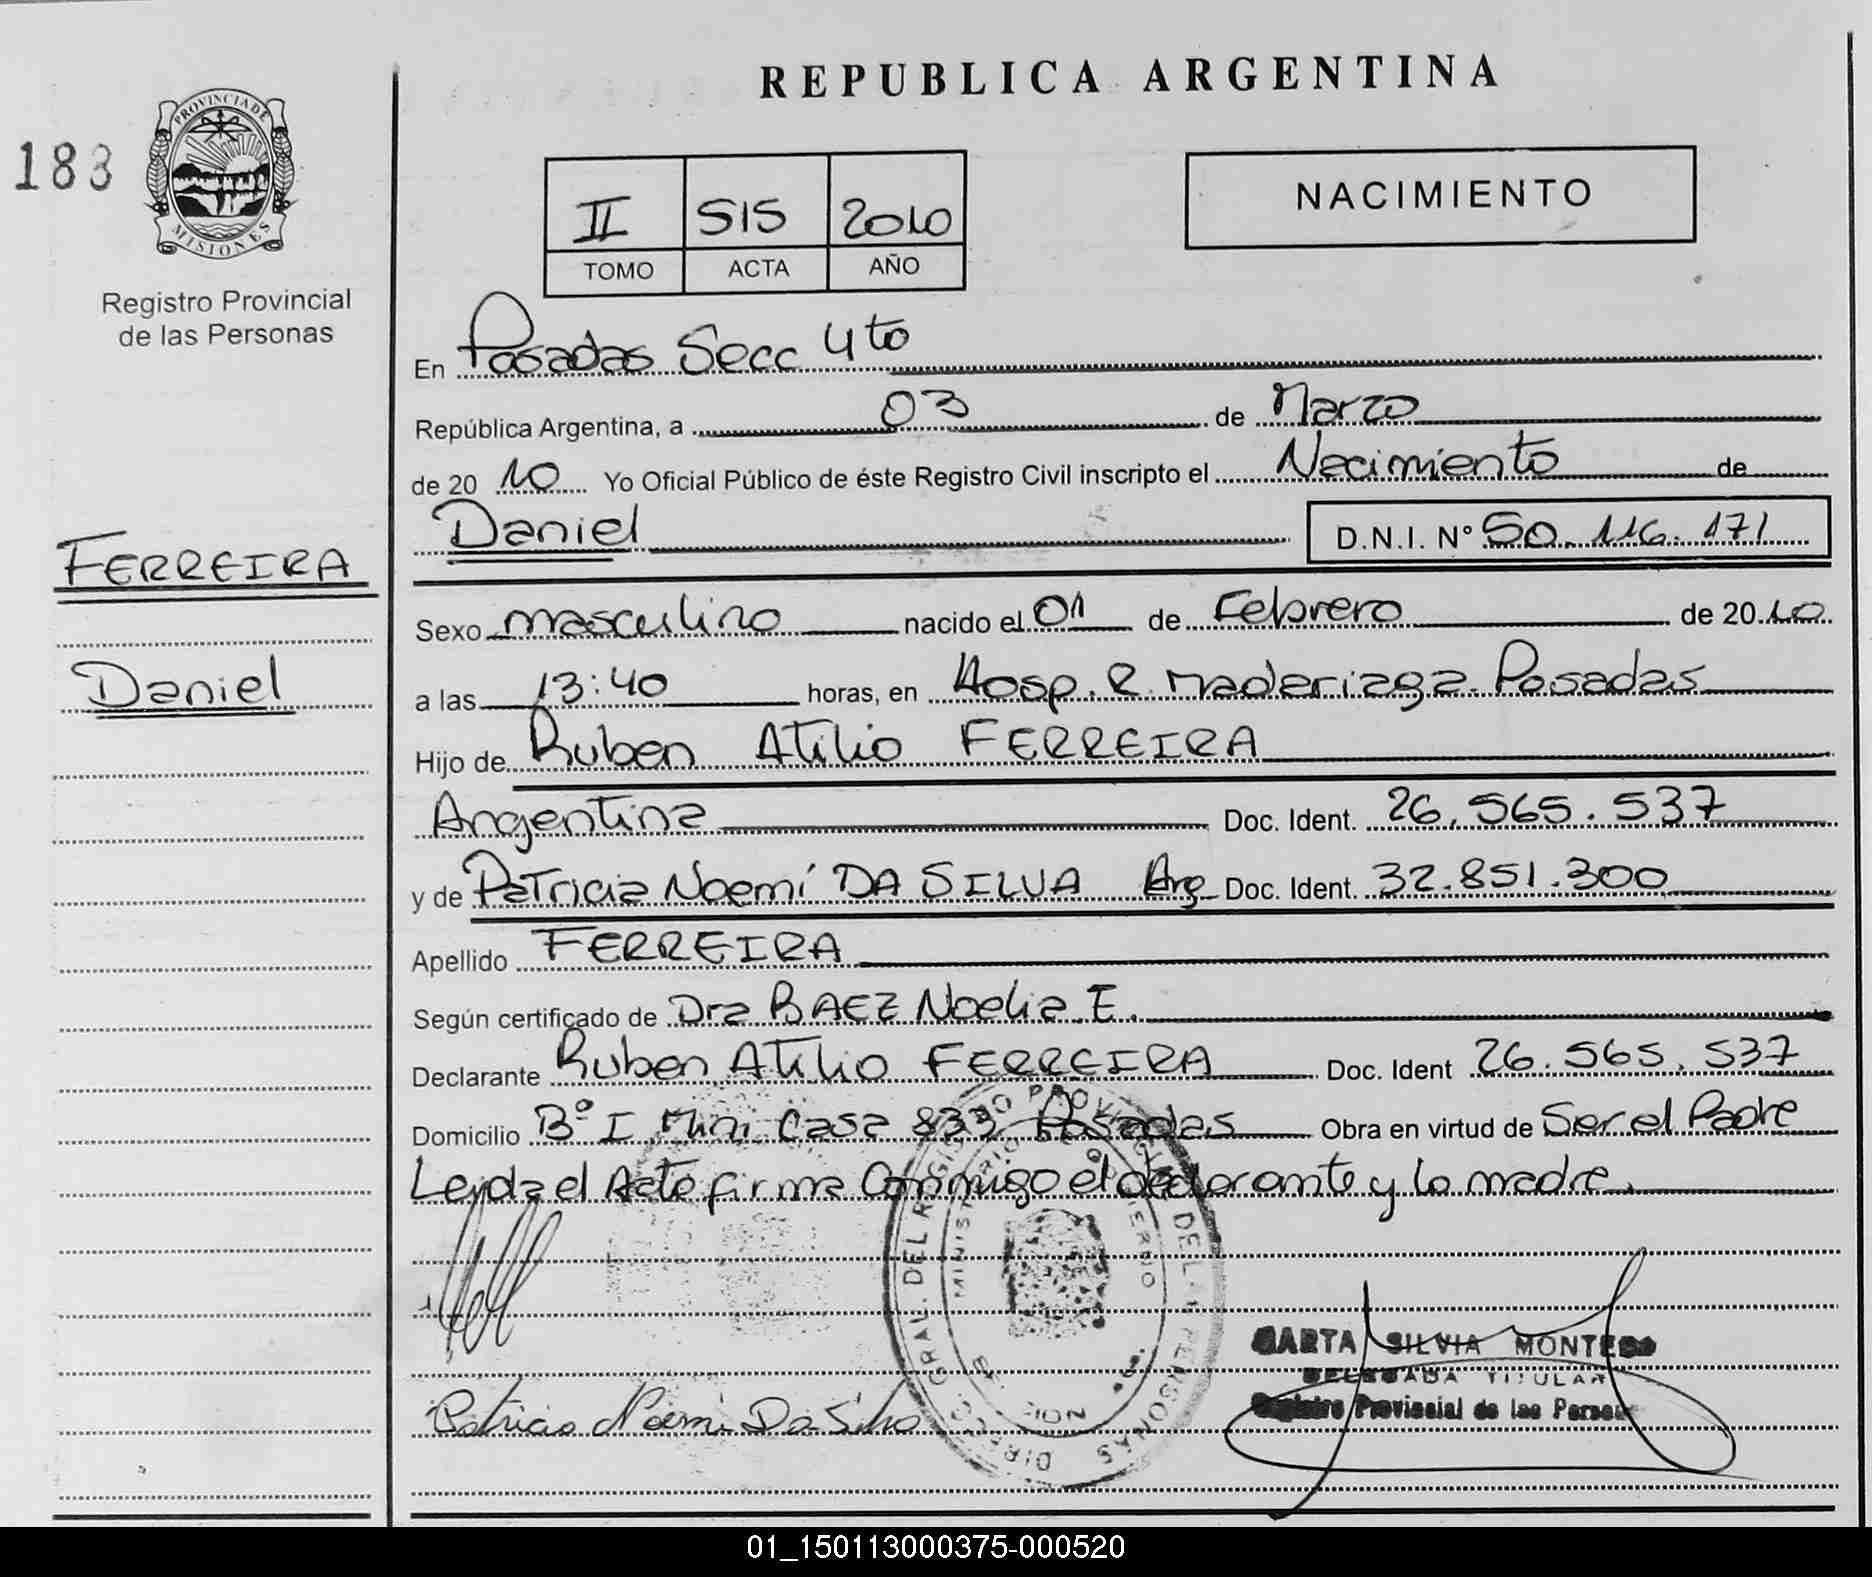 REPUBLICA ARGENTINA
183
PROVINCIA DE
MISIONES
Registro Provincial
de las Personas
II 515 2010
TOMO ACTA AÑO
NACIMIENTO
En Posadas Secc 4to
República Argentina, a 03 de Marzo
de 2010 Yo Oficial Público de éste Registro Civil inscripto el Nacimiento de
Daniel D.N.I. N° 50.116.171
FERREIRA
Daniel
Sexo masculino nacido el 01 de Febrero de 2010
a las 13:40 horas, en Hosp. R. Madariaga. Posadas
Hijo de Ruben Atilio FERREIRA
Argentina Doc. Ident. 26.565.537
y de Patricia Noemí DA SILVA Arg Doc. Ident. 32.851.300
Apellido FERREIRA
Según certificado de Dra BAEZ Noelia E.
Declarante Ruben Atilio FERREIRA Doc. Ident 26.565.537
Domicilio B° I Mini Casa 833 Posadas Obra en virtud de Ser el Padre
Leida el Acta firma Conmigo el declarante y la madre.
Patricia Noemi Da Silva
SILVIA MONTERO
DELEGADA TITULAR
Registro Provincial de las Personas
01_150113000375-000520